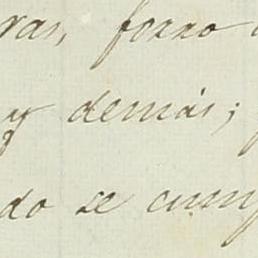 ras, forro
y demás;
do se cump